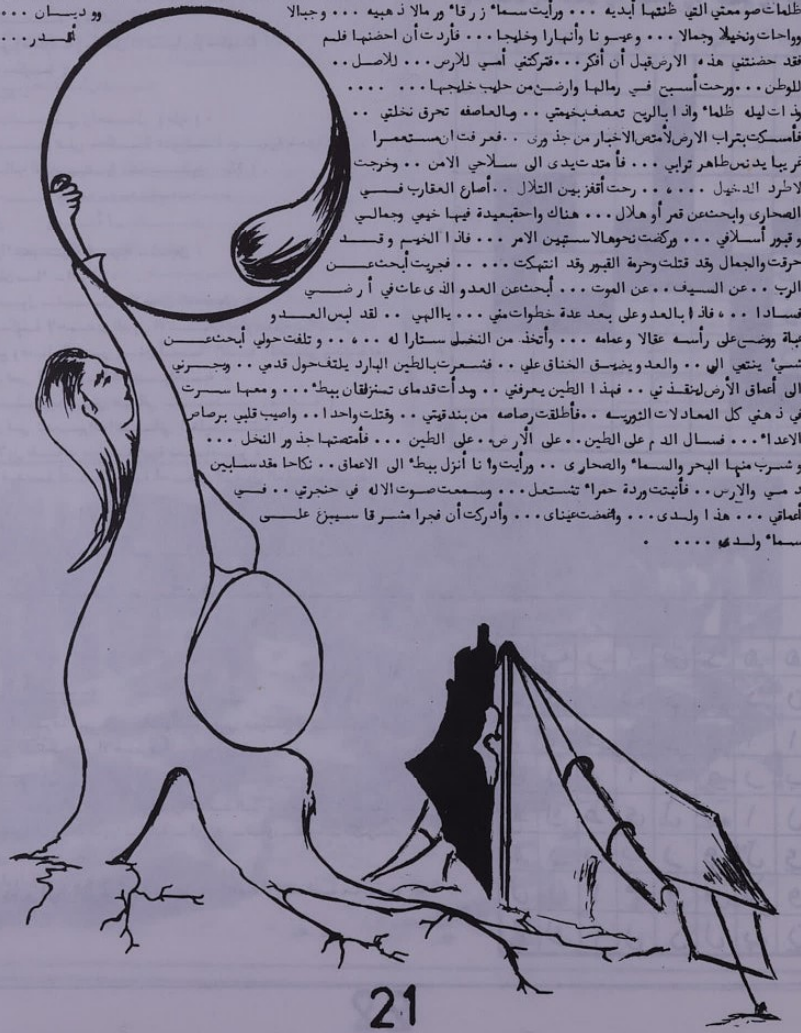 ظلمات صومعتي التي ظننتها أبديه ... ورأيت سماء زرقاء ورمالا ذهبيه ... وجبالا ووديان ...
وواحات ونخيلا وجمالا ... وعيونا وأنهارا وخليجا ... فأردت أن احضنها فلم أقدر...
فقد حضنتني هذه الارض قبل أن أفكر... فتركتني أمي للأرض ... للاصل ..
للوطن ... ورحت أسبح في رمالها وارضع من حليب خليجها ... ....
وذات ليله ظلماء واذا بالريح تعصف بخيمتي .. وبالعاصفه تحرق نخلتي ..
فأمسكت بتراب الارض لأمتص الاخبار من جذورى .. فعرفت ان مستعمرا
غريبا يدنس طاهر ترابي ... فأمتدت يدى الى سلاحي الامن .. وخرجت
لاطرد الدخيل ...، .. رحت أقفز بين التلال .. أصارع العقارب فـــي
الصحارى وابحث عن قمر أو هلال ... هناك واحة بعيدة فيها خيمي وجمالي
وقبور أسلافي ... وركضت نحوها لاستبين الامر ... فاذا الخيم وقــد
حرقت والجمال وقد قتلت وحرمة القبور وقد انتهكت ... .. فجريت أبحث عــن
الرب .. عن السيف .. عن الموت ... أبحث عن العدو الذى عاث في أرضــي
فسادا ... ، فاذا بالعدو على بعد عدة خطوات مني ... ياالهي .. لقد لبس العــدو
عباة ووضع على رأسه عقالا وعمامه ... وأتخذ من النخيل ستارا له ...، .. وتلفت حولي أبحث عــن
شيء ينتمي الي .. والعدو يضيق الخناق علي .. فشعرت بالطين البارد يلتف حول قدمي .. ويجــرني
الى أعماق الأرض لينقذني .. فهذا الطين يعرفني .. وبدأت قدماى تنزلقان ببطء ... ومعها ســرت
في ذهني كل المعادلات الثوريه ... فأطلقت رصاصه من بندقيتي .. وقتلت واحدا .. واصيب قلبي برصاص
الاعداء ... فسال الدم على الطين .. على الأرض .. على الطين ... فأمتصتها جذور النخل ...
وشرب منها البحر والسماء والصحارى .. ورأيت وأنا أنزل ببطء الى الاعماق .. نكاحا مقدسا بين
دمي والارض .. فأنبتت وردة حمراء تشتعل ... وسمعت صوت الاله في حنجرتي .. فــي
أعماقي ... هذا ولدى ... واغمضت عيناى ... وأدركت أن فجرا مشرقا سيبزغ علــى
سماء ولدى .... .
21